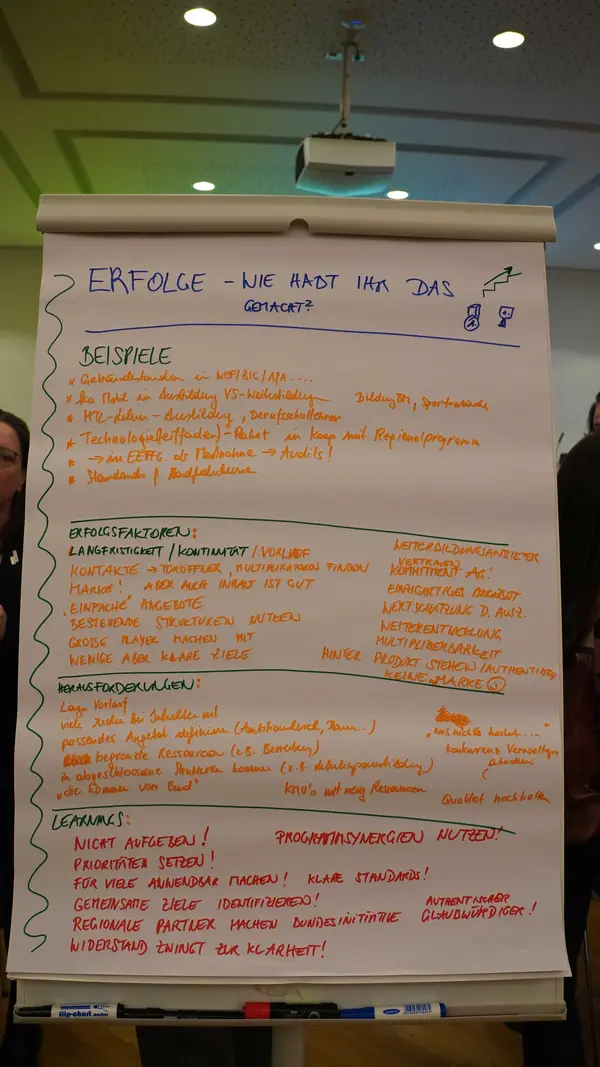 ERFOLGE - WIE HABT IHR DAS
GEMACHT?
BEISPIELE
* Gebäudestandard in
* in Ausbildung VS-Weiterbildung
* HTL-Lehrer-Ausbildung, Berufsschullehrer
* Technologie(leitfaden)-Paket in Koop mit Regionalprogramm
* → im EEffG als Maßnahme → Audits!
* Standards f Radfahrkurse
ERFOLGSFAKTOREN:
LANGFRISTIGKEIT / KONTINUITÄT / VORLAUF
KONTAKTE → TÜRÖFFNER, MULTIPLIKATOREN FINDEN
MARKE! ABER AUCH INHALT IST GUT
"EINFACHE" ANGEBOTE
BESTEHENDE STRUKTUREN NUTZEN
GROSSE PLAYER MACHEN MIT
WENIGE ABER KLARE ZIELE
WEITERBILDUNGSANBIETER
VERTRAUEN
KOMMITMENT AG!
EINZIGARTIGES ANGEBOT
WERTSCHÄTZUNG D. AUSZ.
WEITERENTWICKLUNG
MULTIPLIZIERBARKEIT
HINTER PRODUKT STEHEN /
KEINE "MARKE"
HERAUSFORDERUNGEN:
Langer Vorlauf
viele bei Inhalten mit
passendes Angebot definieren
begrenzte Ressourcen (z.B. Beratung)
in abgeschlossene Strukturen kommen (z.B.
"die kommen vom Bund"
KMU's mit wenig Ressourcen
"was nichts kostet..."
Konkurrenz
Qualität hochhalten
LEARNINGS:
NICHT AUFGEBEN!
PROGRAMMSYNERGIEN NUTZEN!
PRIORITÄTEN SETZEN!
FÜR VIELE ANWENDBAR MACHEN! KLARE STANDARDS!
GEMEINSAME ZIELE IDENTIFIZIEREN!
REGIONALE PARTNER MACHEN BUNDESINITIATIVE
AUTHENTISCHER
GLAUBWÜRDIGER!
WIDERSTAND ZWINGT ZUR KLARHEIT!
flip-chart
marker